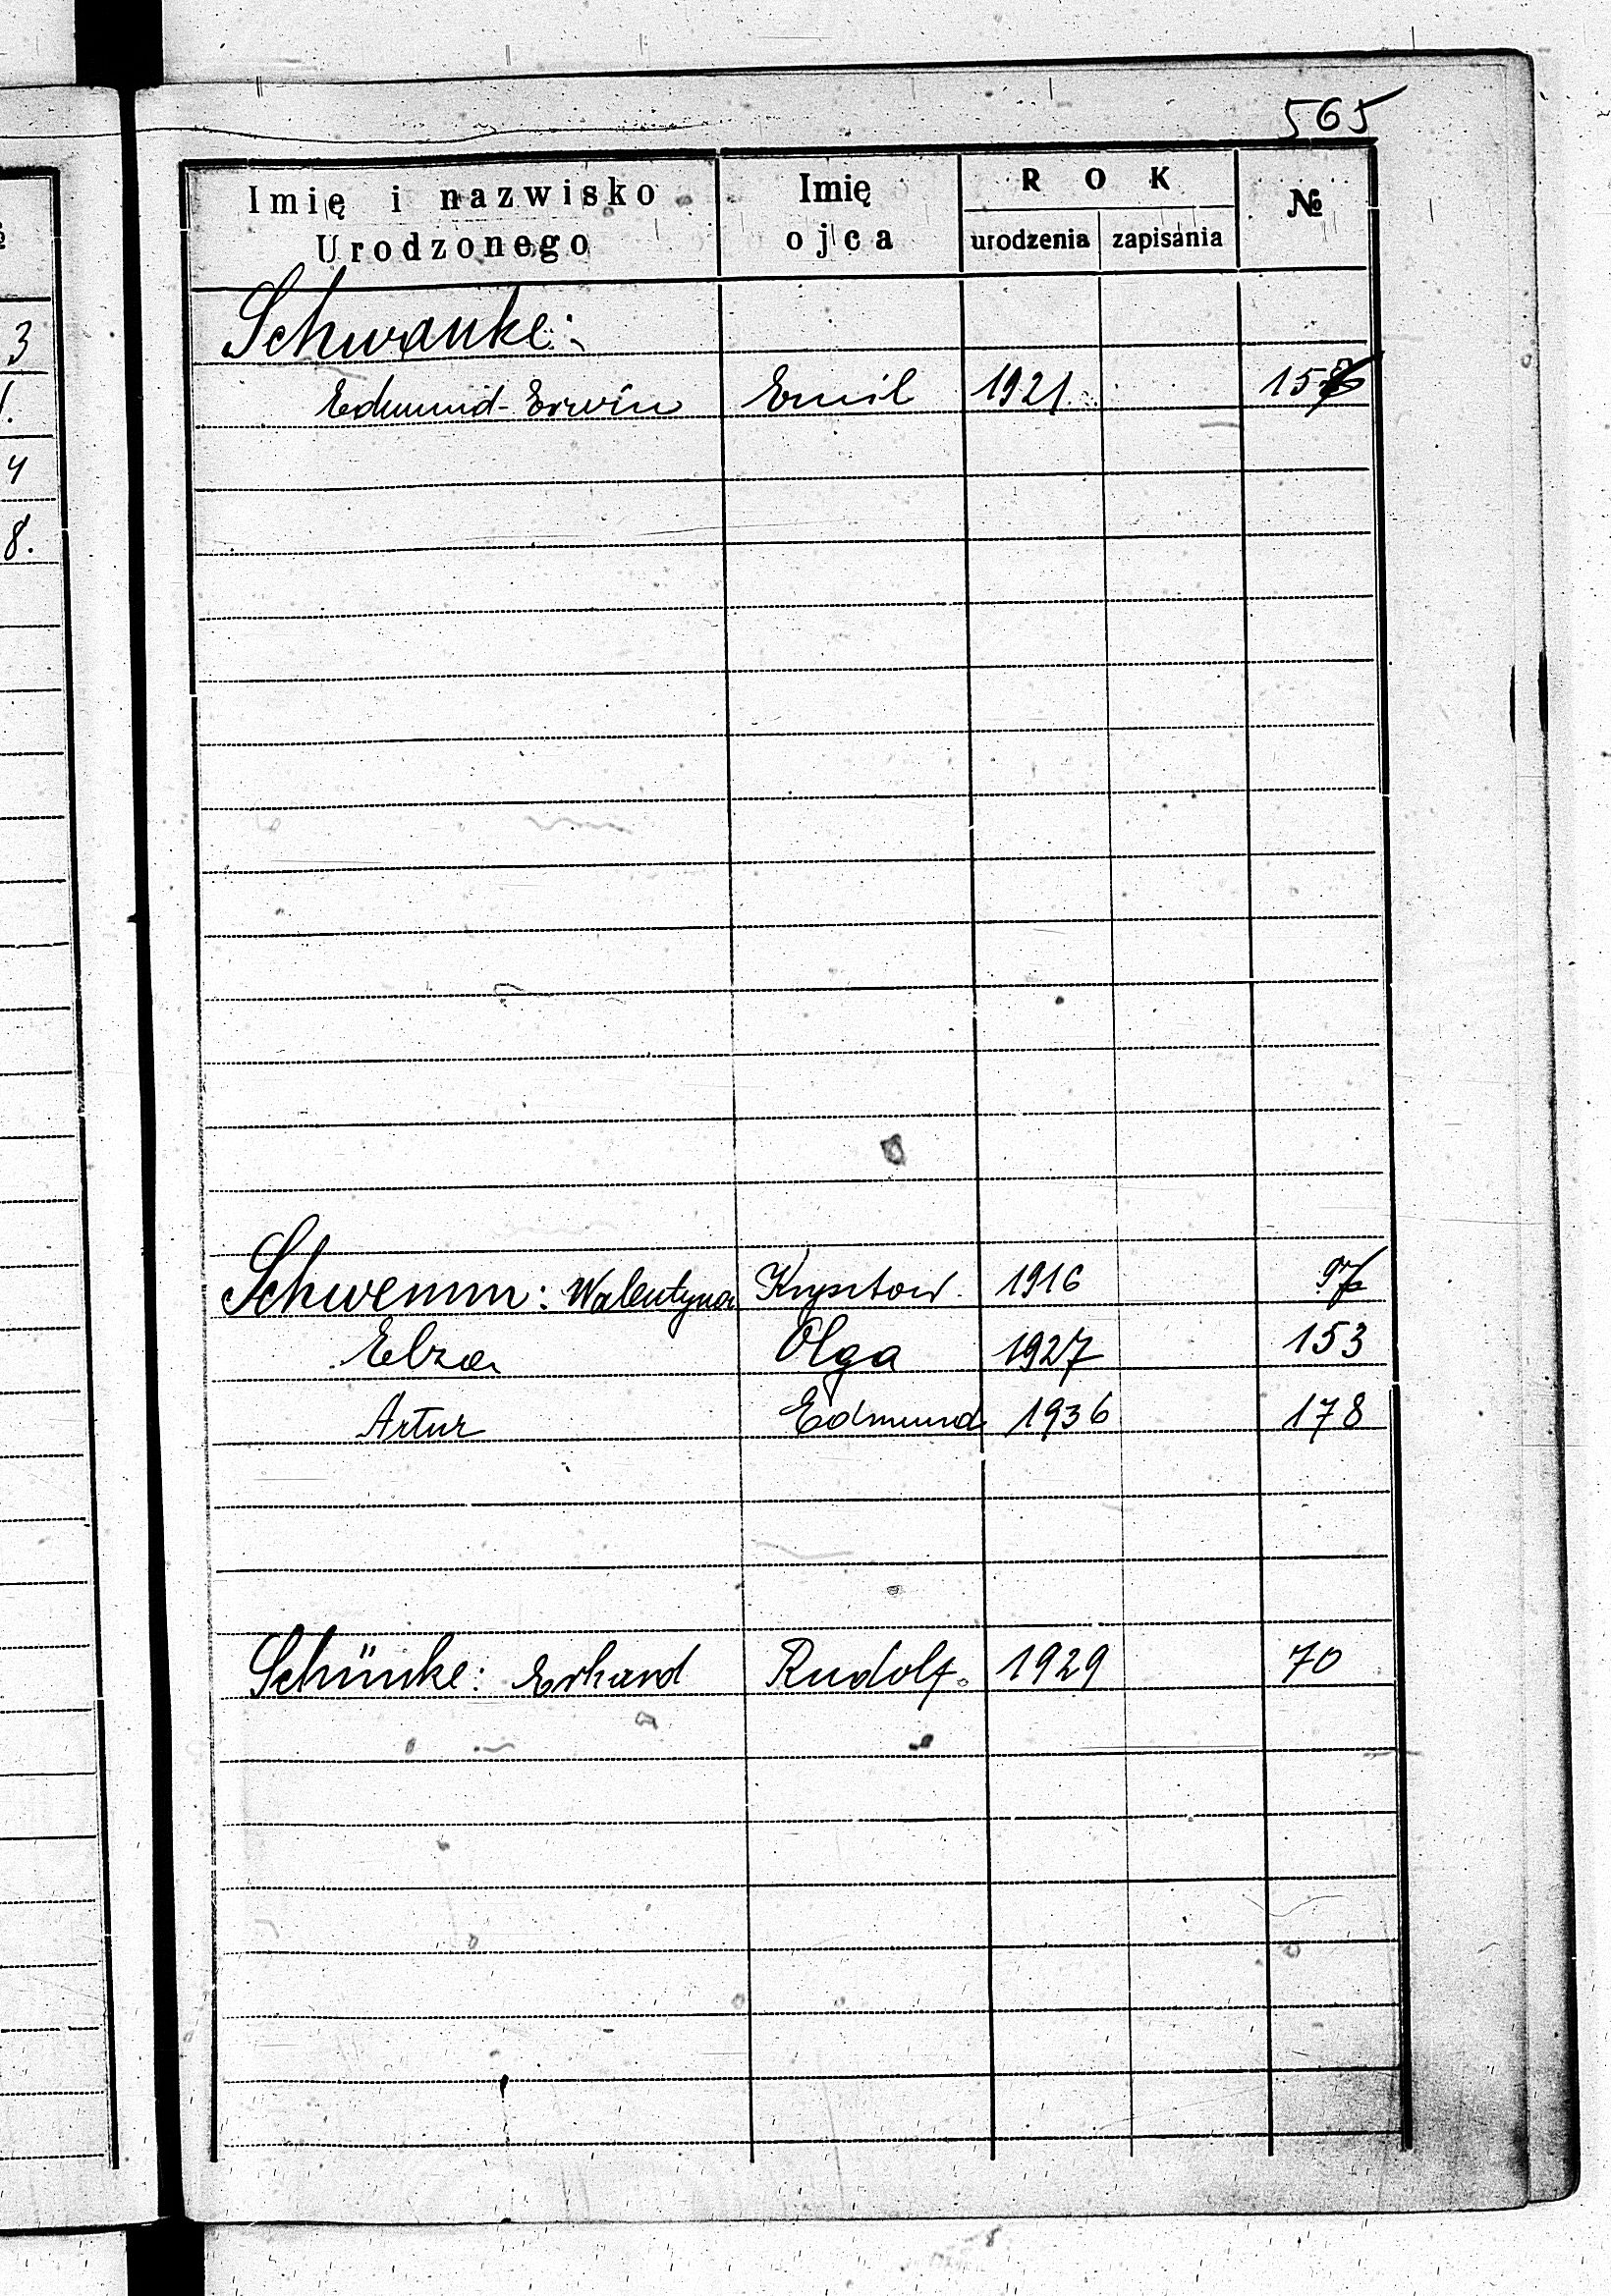 565
Imię i nazwisko Urodzonego | Imię ojca | ROK urodzenia | zapisania | №
Schwanke:
Edmund-Erwin Emil 1921
Schwemm: Walentyna 1916
Elza Olga 1927 153
Artur Edmund 1936 178
Schünke: Erhard Rudolf. 1929 70
3
1.
4
8.